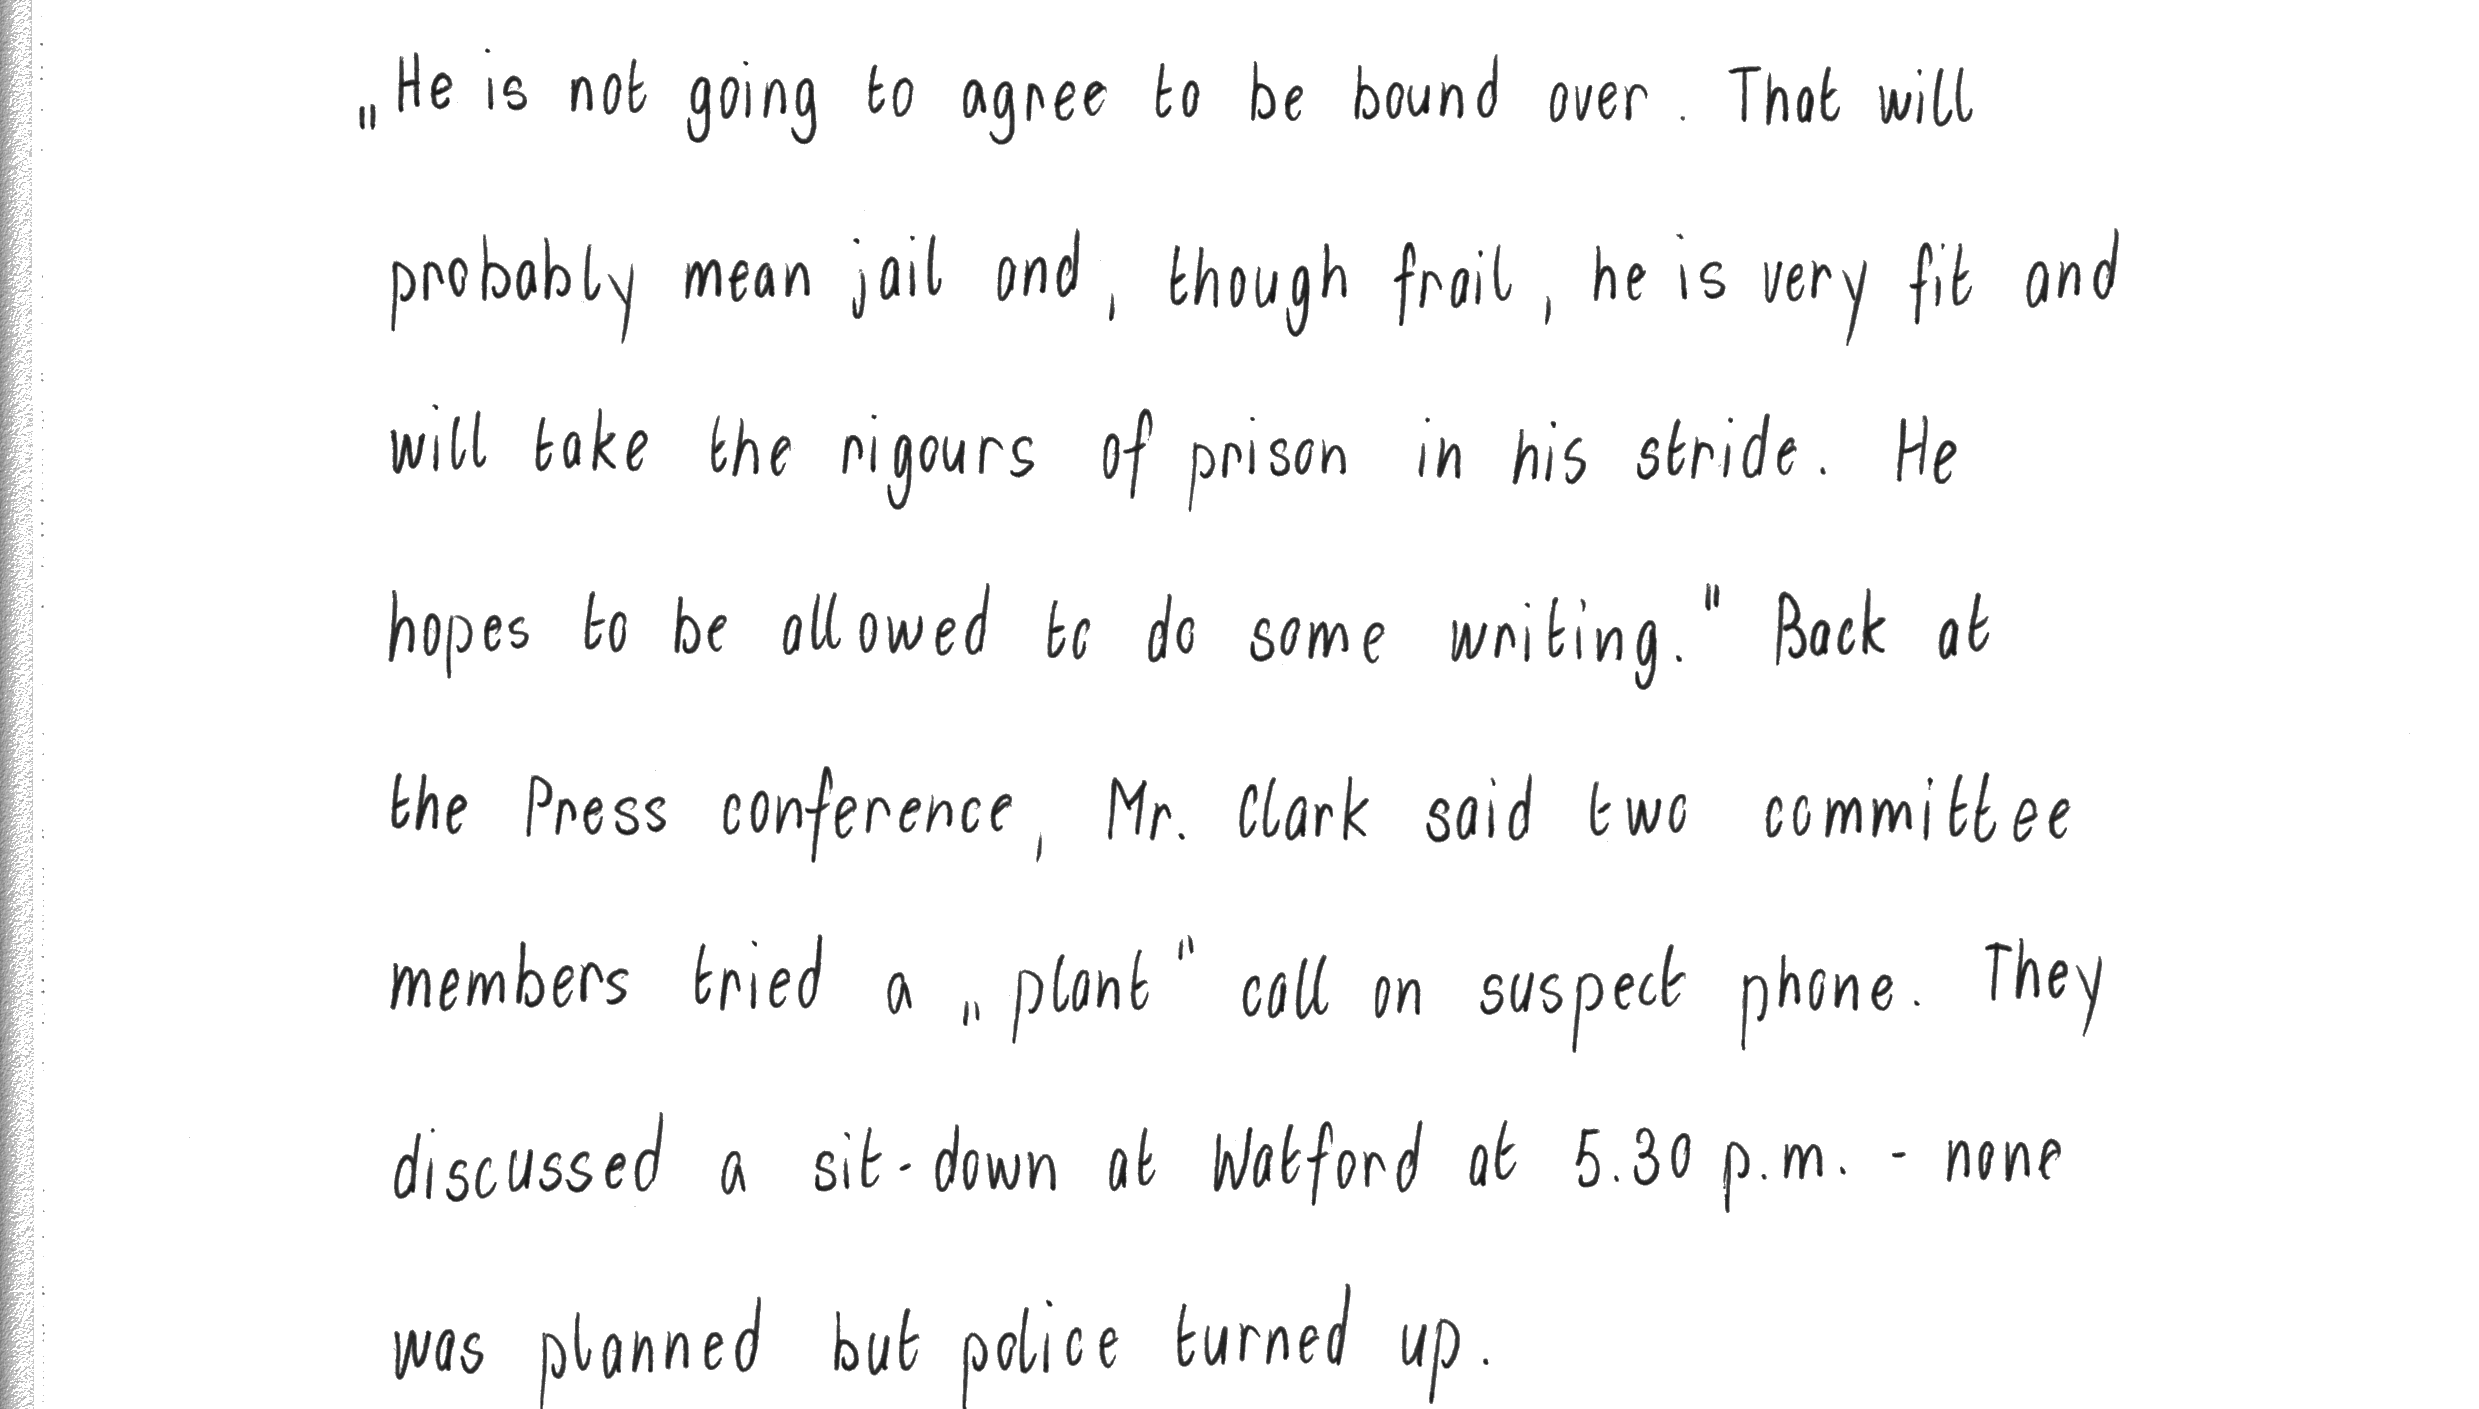 „He is not going to agree to be bound over. That will
probably mean jail and, though frail, he is very fit and
will take the rigours of prison in his stride. He
hopes to be allowed to do some writing." Back at
the Press conference, Mr. Clark said two committee
members tried a „plant" call on suspect phone. They
discussed a sit-down at Watford at 5.30 p.m. - none
was planned but police turned up.